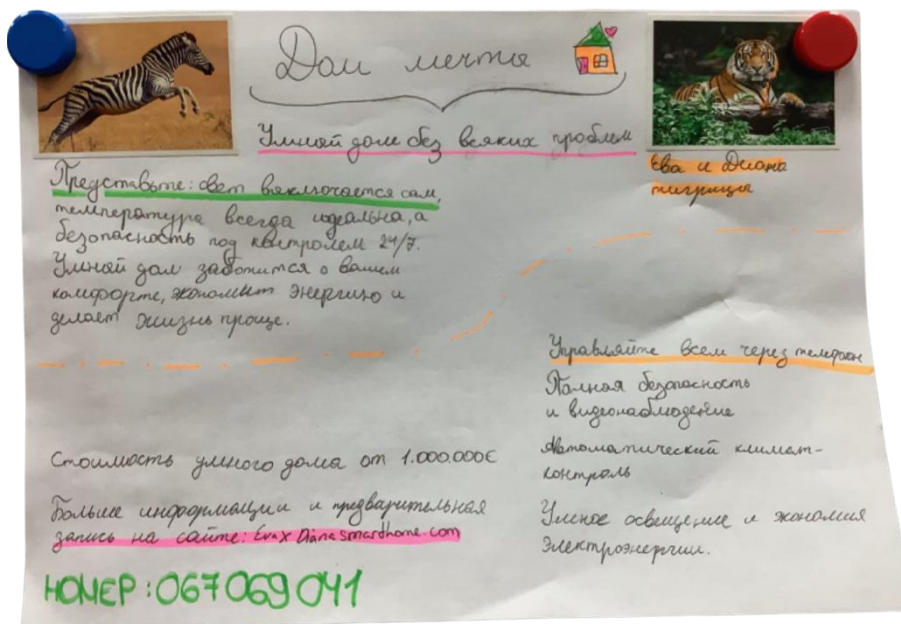 Дом мечта
Умной дом без всяких проблем
Ева и Диана
тигрицы
Представьте: свет включается сам,
температура всегда идеальна, а
безопасность под контролем 24/7.
Умной дом заботится о вашем
комфорте, экономит энергию и
делает жизнь проще.
Управляйте всем через телефон
Полная безопасность
и видеонаблюдение
Автоматический климат-
контроль
Умное освещение и экономия
электроэнергии.
Стоимость умного дома от 1.000.000€
Больше информации и предварительная
запись на сайте: EvaXDianasmarthome.com
НОМЕР: 067069041